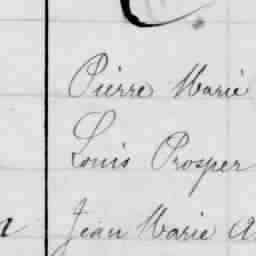 Pierre Marie
Louis Prosper
Jean Marie A